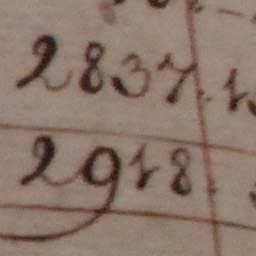 2837.
2918.